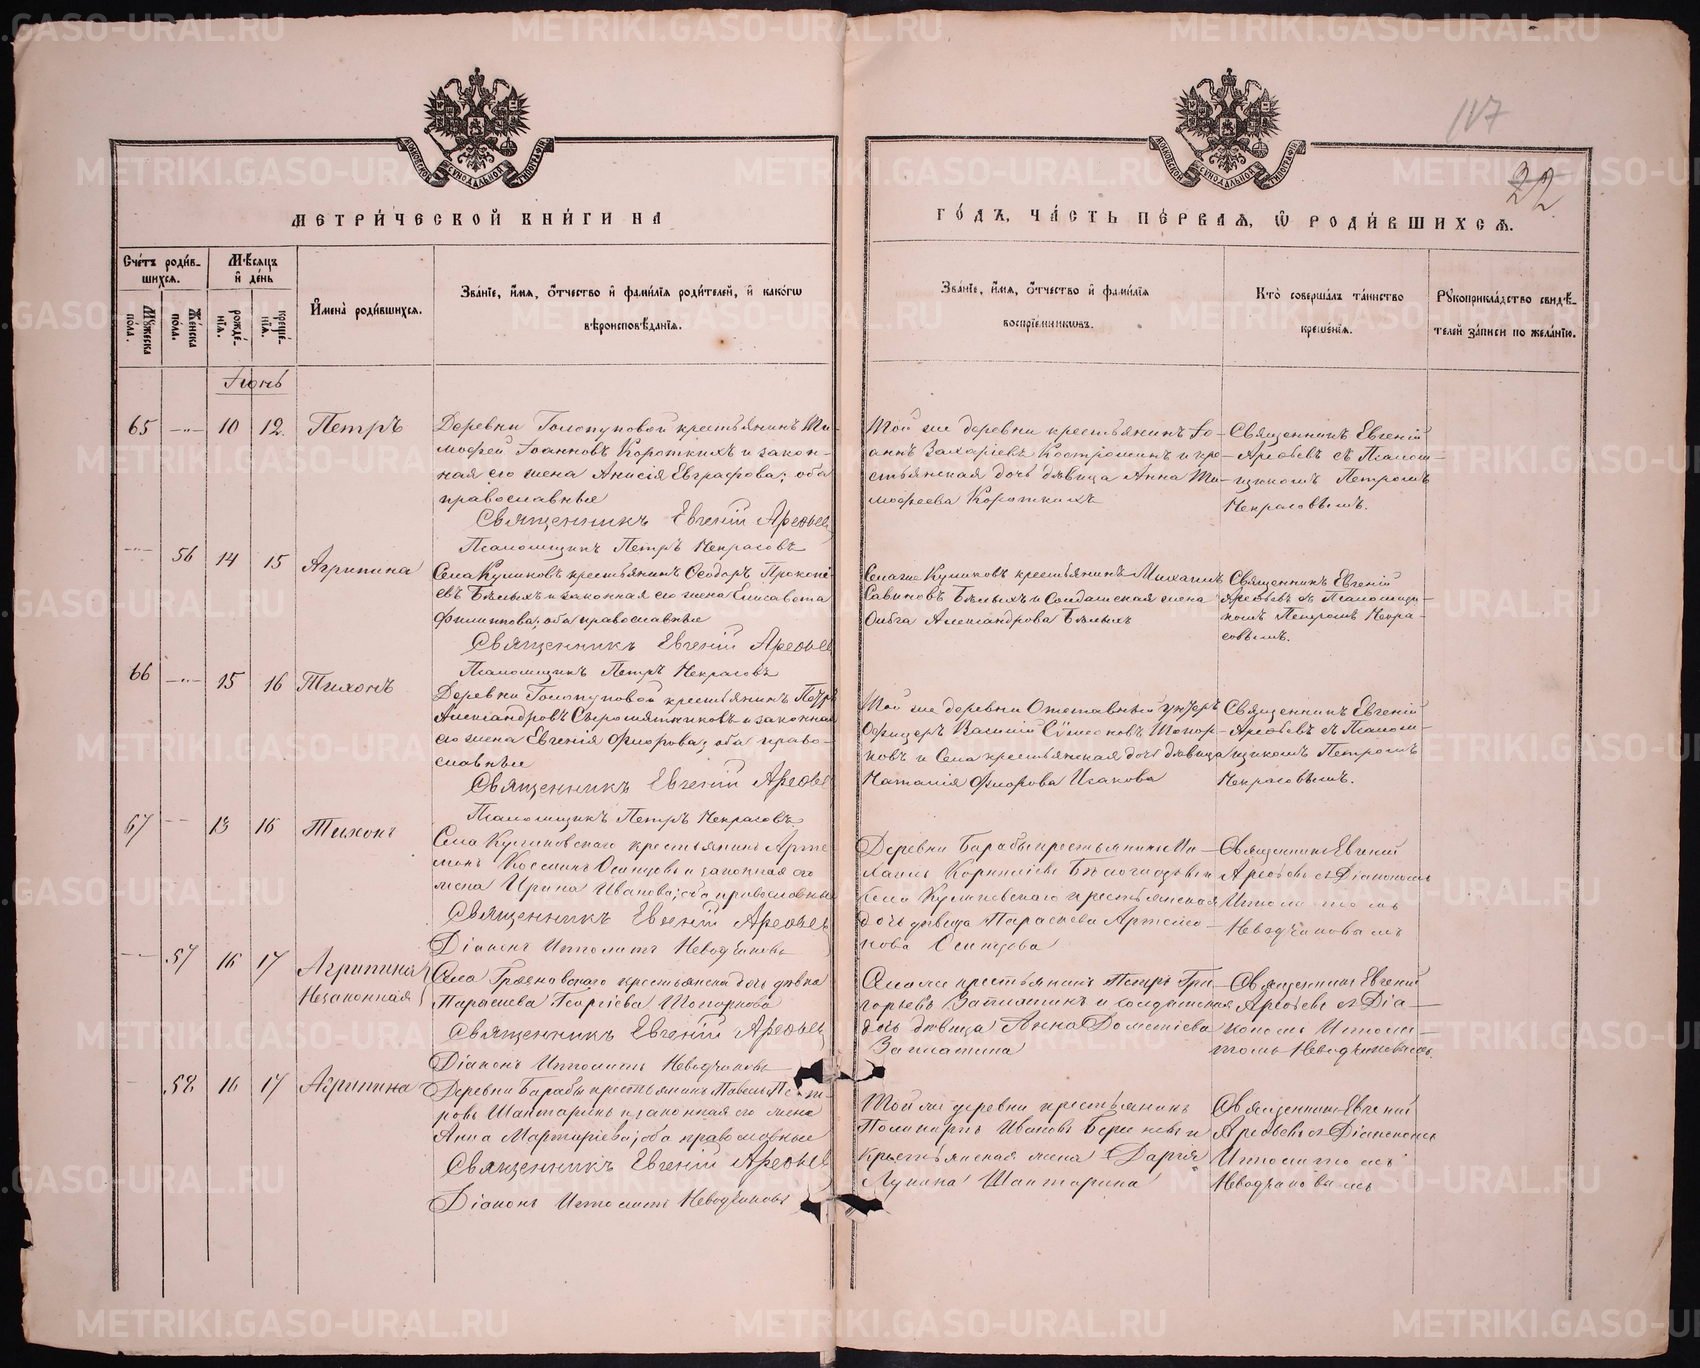 117
22
МЕТРИ́ЧЕСКОЙ КНИ́ГИ НА
ГО́ДЪ, ЧА́СТЬ ПЕ́РВАЯ, Ѡ҆ РОДИ́ВШИХСЯ.
Сче́тъ роди́в-
шихся.
Мѣсяцъ
и҆ де́нь
Му́жеска
по́ла.
Же́нска
по́ла.
рожде́-
нїя.
креще́-
нїя.
И҆мена̀ роди́вшихся.
Зва́нїе, и҆́мя, ѻ҆́тчество и҆ фами́лїя роди́телей, и҆ како́гѡ
вѣроисповѣ́данїя.
Зва́нїе, и҆́мя, ѻ҆́тчество и҆ фами́лїя
воспрїе́мникѡвъ.
Кто̀ соверша́лъ та́инство
креще́нїя.
Рукоприкла́дство свидѣ́-
телей за́писи по жела́нїю.
Іюнь
65 —„— 10 12. Петръ
Деревни Голопуповой крестьянинъ Ти-
мофей Іоанновъ Короткихъ и закон-
ная его жена Анисія Евграфова; оба
православные
Священникъ Евгеній Арефьев
Псаломщикъ Петръ Некрасовъ
Той же деревни крестьянинъ Іо-
аннъ Захаріевъ Костроминъ и кре-
стьянская дочь дѣвица Анна Ти-
мофеева Короткихъ
Священникъ Евгеній
Арефьевъ съ Псалом-
щикомъ Петромъ
Некрасовымъ.
—„— 56 14 15 Агрипина
Села Куликовъ крестьянинъ Ѳеодоръ Прокопі-
евъ Бѣлыхъ и законная его жена Елисавета
Филиппова; оба православные
Священникъ Евгеній Арефьев
Псаломщикъ Петръ Некрасовъ
Села же Куликовъ крестьянинъ Михаилъ
Савиновъ Бѣлыхъ и Солдатская жена
Ольга Александрова Бѣлыхъ
Священникъ Евгеній
Арефьевъ съ Псаломщи-
комъ Петромъ Некра-
совымъ.
66 —„— 15 16 Тихонъ
Деревни Голопуповой крестьянинъ Петръ
Александровъ Сыромятниковъ и законная
его жена Евгенія Флорова; оба право-
славные
Священникъ Евгеній Арефьев
Псаломщикъ Петръ Некрасовъ
Той же деревни Отставный унтеръ
Офицеръ Василій Сѵмеоновъ Топор-
ковъ и Села крестьянская дочь дѣвица
Наталія Флорова Исакова
Священникъ Евгеній
Арефьевъ съ Псалом-
щикомъ Петромъ
Некрасовымъ.
67 — 13 16 Тихонъ
Села Куликовскаго крестьянинъ Арте-
монъ Космин Осинцовъ и законная его
жена Ирина Иванова; оба православные
Священникъ Евгеній Арефьев
Діаконъ Ипполитъ Неводчиковъ
Деревни Барабы крестьянинъ Ми-
хаилъ Корниліевъ Бѣлоглазовъ и
села Куликовскаго крестьянская
дочь дѣвица Параскева Артемо-
нова Осинцова
Священникъ Евгеній
Арефьевъ съ Діакономъ
Ипполитомъ
Неводчиковымъ
— 57 16 17 Агрипина
Незаконная
Села крестьянска дочь дѣвка
Параскева Георгіева Топоркова
Священникъ Евгеній Арефьев
Діаконъ Ипполитъ Неводчиковъ
Села же крестьянинъ Петръ Гри-
горьевъ Заплатинъ и солдатская
дочь дѣвица Анна Дометіева
Заплатина
Священникъ Евгеній
Арефьевъ съ Діа-
кономъ Ипполи-
томъ Неводчиковымъ.
— 58 16 17 Агрипина
Деревни Барабы крестьянинъ Павелъ Пет-
ровъ Шантаринъ и законная его жена
Анна Мартиріева; оба православные
Священникъ Евгеній Арефьев
Діаконъ Ипполитъ Неводчиковъ
Той же деревни крестьянинъ
Поликарпъ Ивановъ и
Крестьянская жена Дарія
Лукина Шантарина
Священникъ Евгеній
Арефьевъ съ Діакономъ
Ипполитомъ
Неводчиковымъ